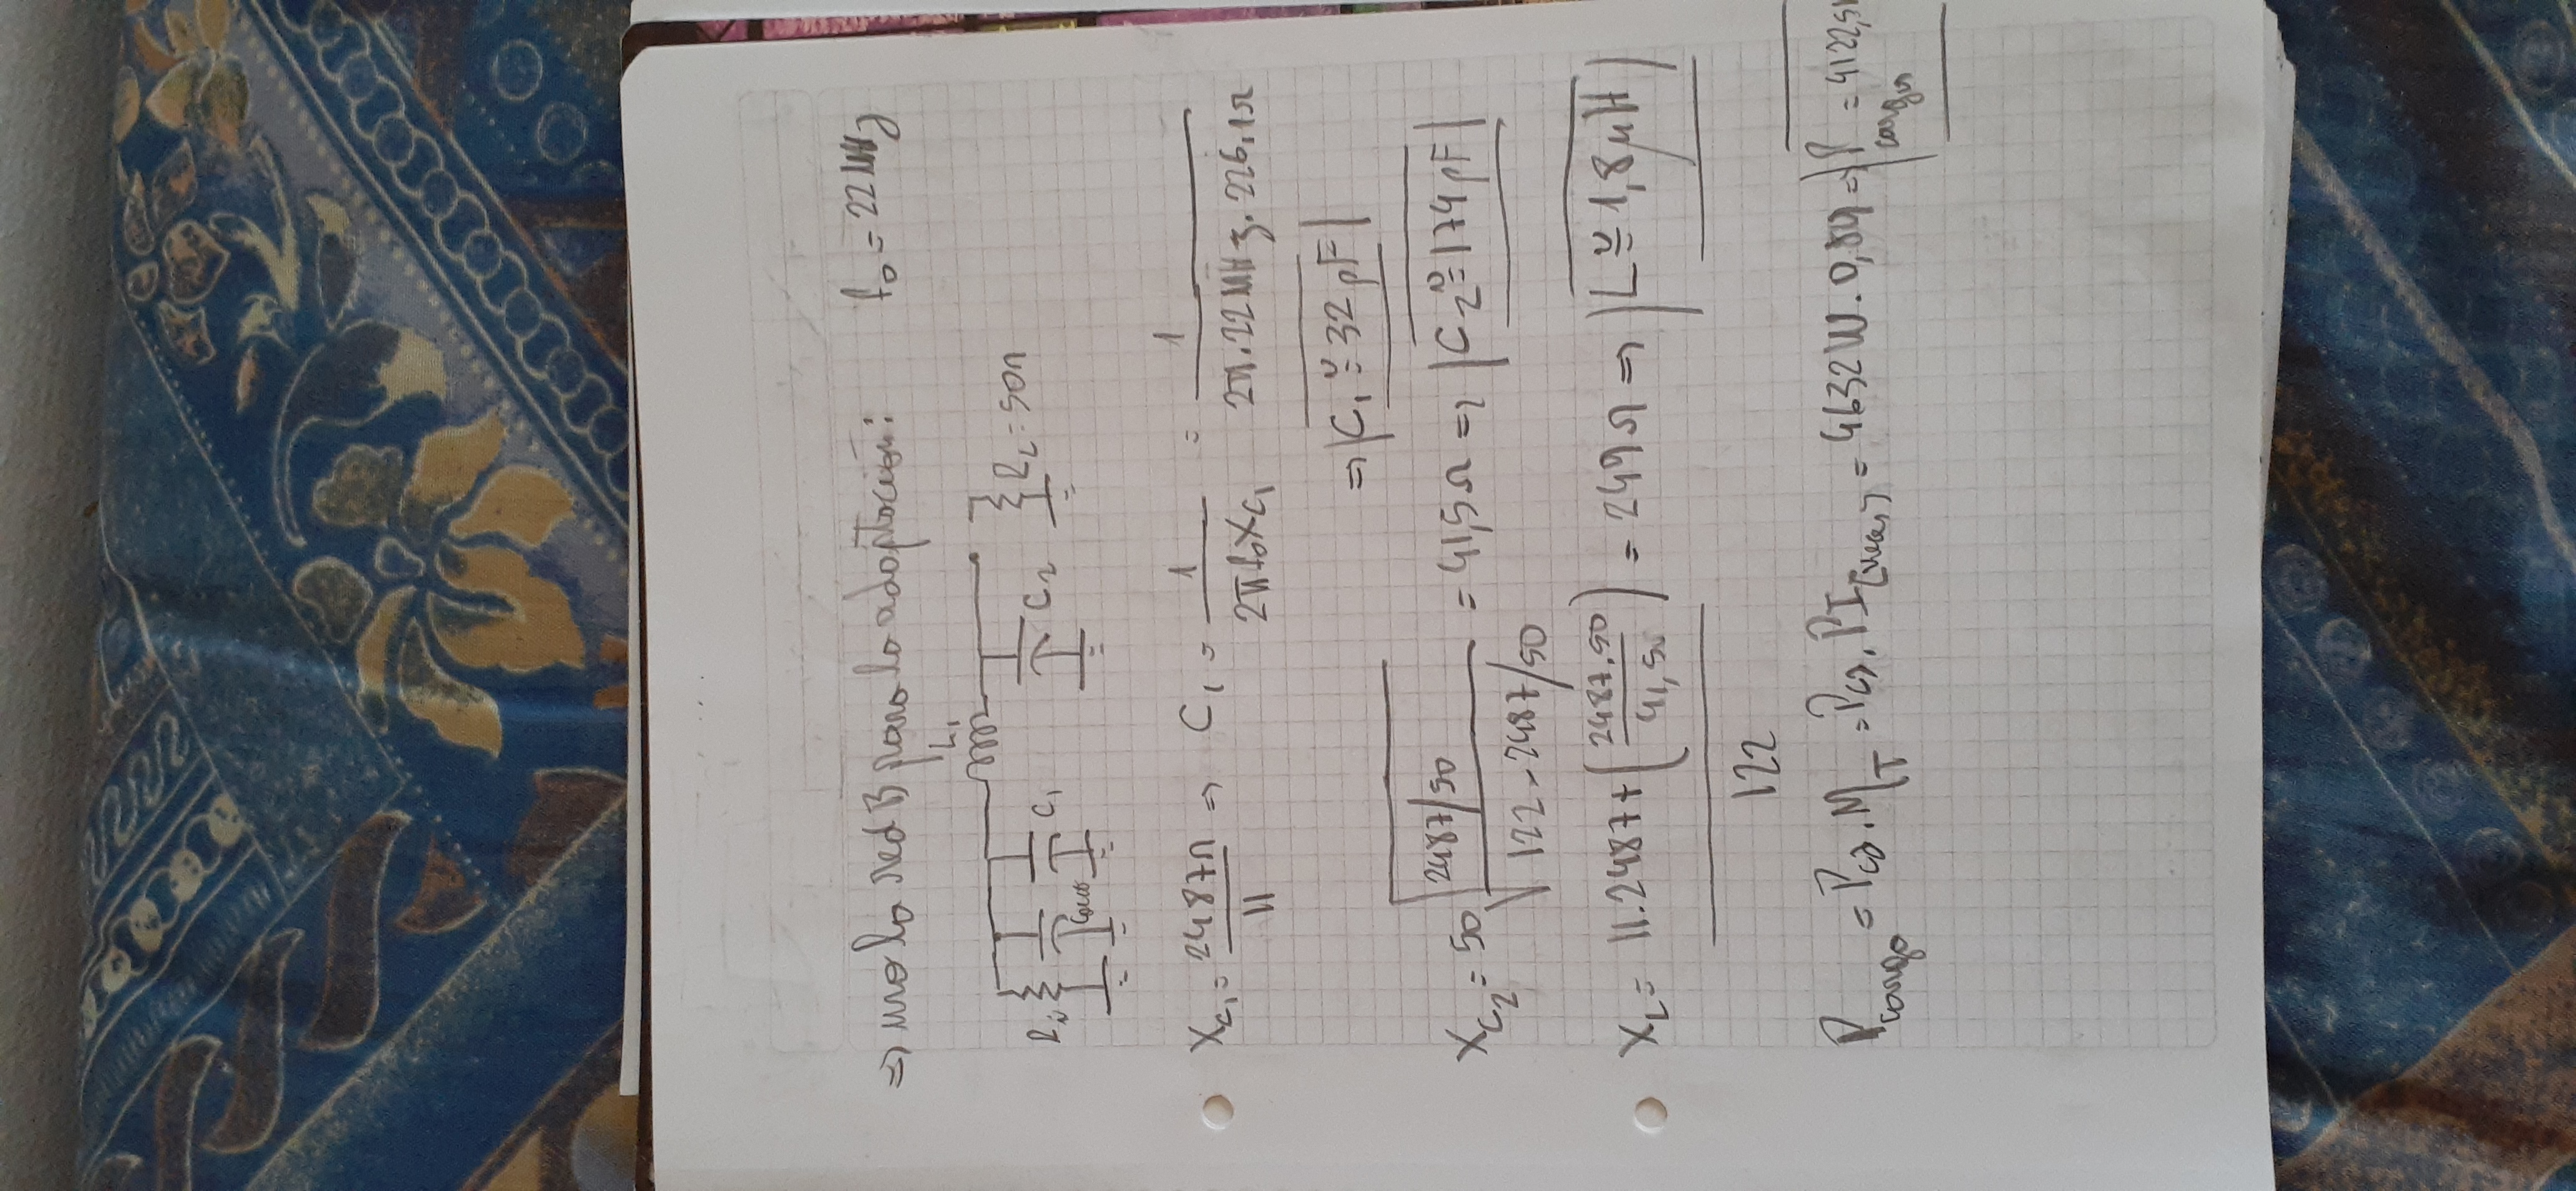 => uso la red B para la adaptación: f₀ = 22 MHz
L₁
Ri Cout C₁ C₂ RL = 50Ω
XC₁ = 2487Ω / 11 => C₁ = 1 / 2πf₀XC₁ = 1 / 2π.22MHz.226,1Ω
=> |C₁ ≅ 32 pF|
XC₂ = 50 √(2487/50 / 122 - 2487/50) = 41,5Ω => |C₂ ≅ 174 pF|
XL = 11.2487 + (2487.50 / 41,50) / 122 = 249Ω => |L ≅ 1,8 μH|
Pcarga = Pca . MT = Pca . PI[veces] = 4632W . 0,89 => |Pcarga = 4122,5